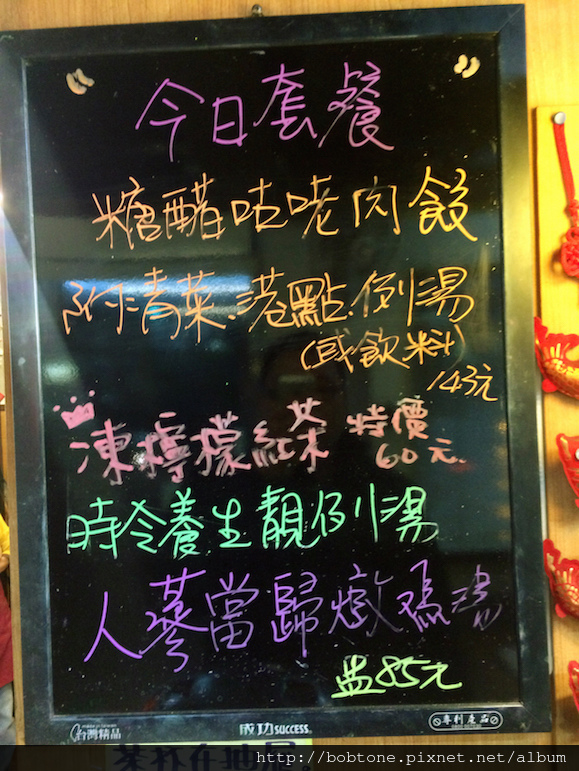 今日套餐
糖醋咕咾肉飯
附青菜.港點.例湯
(或飲料)
143元
凍檸檬紅茶 特價
60元.
時令養生靚例湯
人蔘當歸燉鴉湯
盅85元
台灣精品
成功 SUCCESS
專利產品
http://bobtone.pixnet.net/album